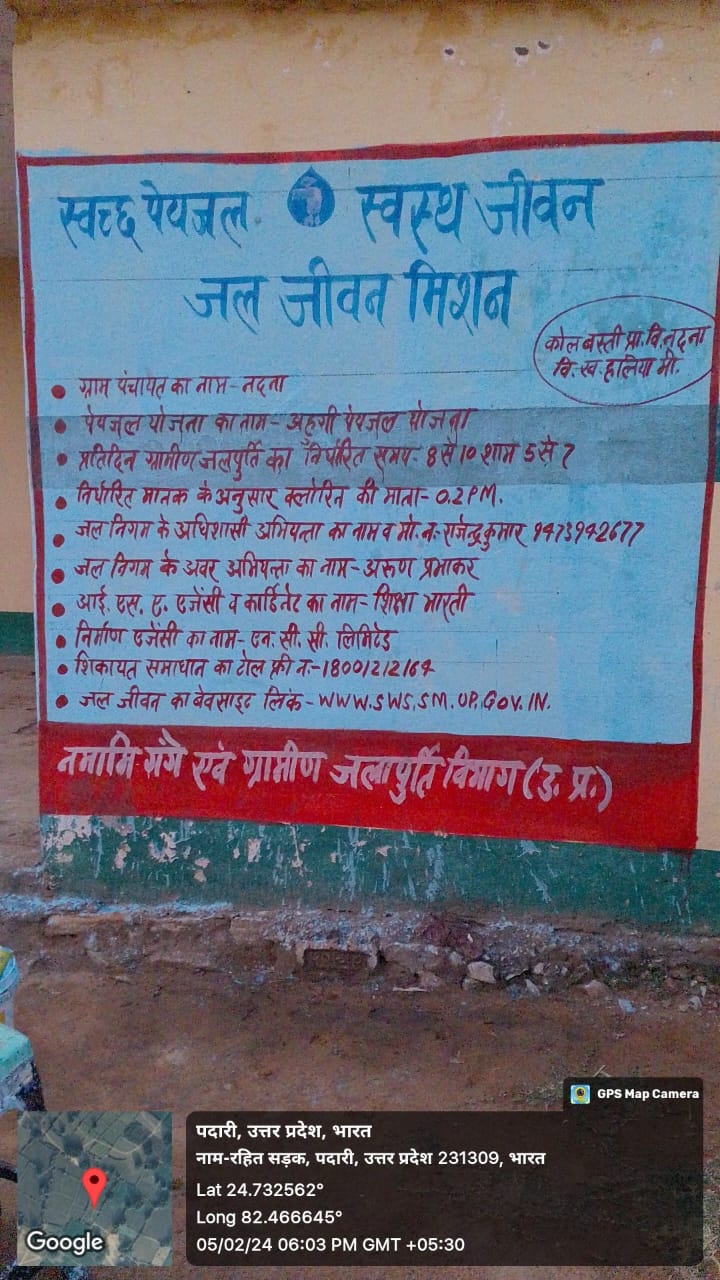 स्वच्छ पेयजल स्वस्थ जीवन
जल जीवन मिशन
कोल बस्ती प्रा. वि. नदना
वि. ख. हालिया मी.
• ग्राम पंचायत का नाम - नदना
• पेयजल योजना का नाम - अहुगी पेयजल योजना
• प्रतिदिन ग्रामीण जलपुर्ति का निर्धारित समय - 8 से 10 शाम 5 से 7
• निर्धारित मानक के अनुसार क्लोरिन की मात्रा - 0.2 PM.
• जल निगम के अधिशासी अभियन्ता का नाम व मो. न. - राजेन्द्र कुमार 9473942677
• जल निगम के अवर अभियन्ता का नाम - अरूण प्रभाकर
• आई. एस. ए. एजेंसी व कार्डिनेट का नाम - शिक्षा भारती
• निर्माण एजेंसी का नाम - एन. सी. सी. लिमिटेड
• शिकायत समाधान का टोल फ्री न. - 18001212164
• जल जीवन का बेवसाइट लिंक - WWW.SWS,SM.UP.GOV.IN.
नमामि गंगे एवं ग्रामीण जलापुर्ति विभाग (उ. प्र.)
GPS Map Camera
पदारी, उत्तर प्रदेश, भारत
नाम-रहित सड़क, पदारी, उत्तर प्रदेश 231309, भारत
Lat 24.732562°
Long 82.466645°
05/02/24 06:03 PM GMT +05:30
Google